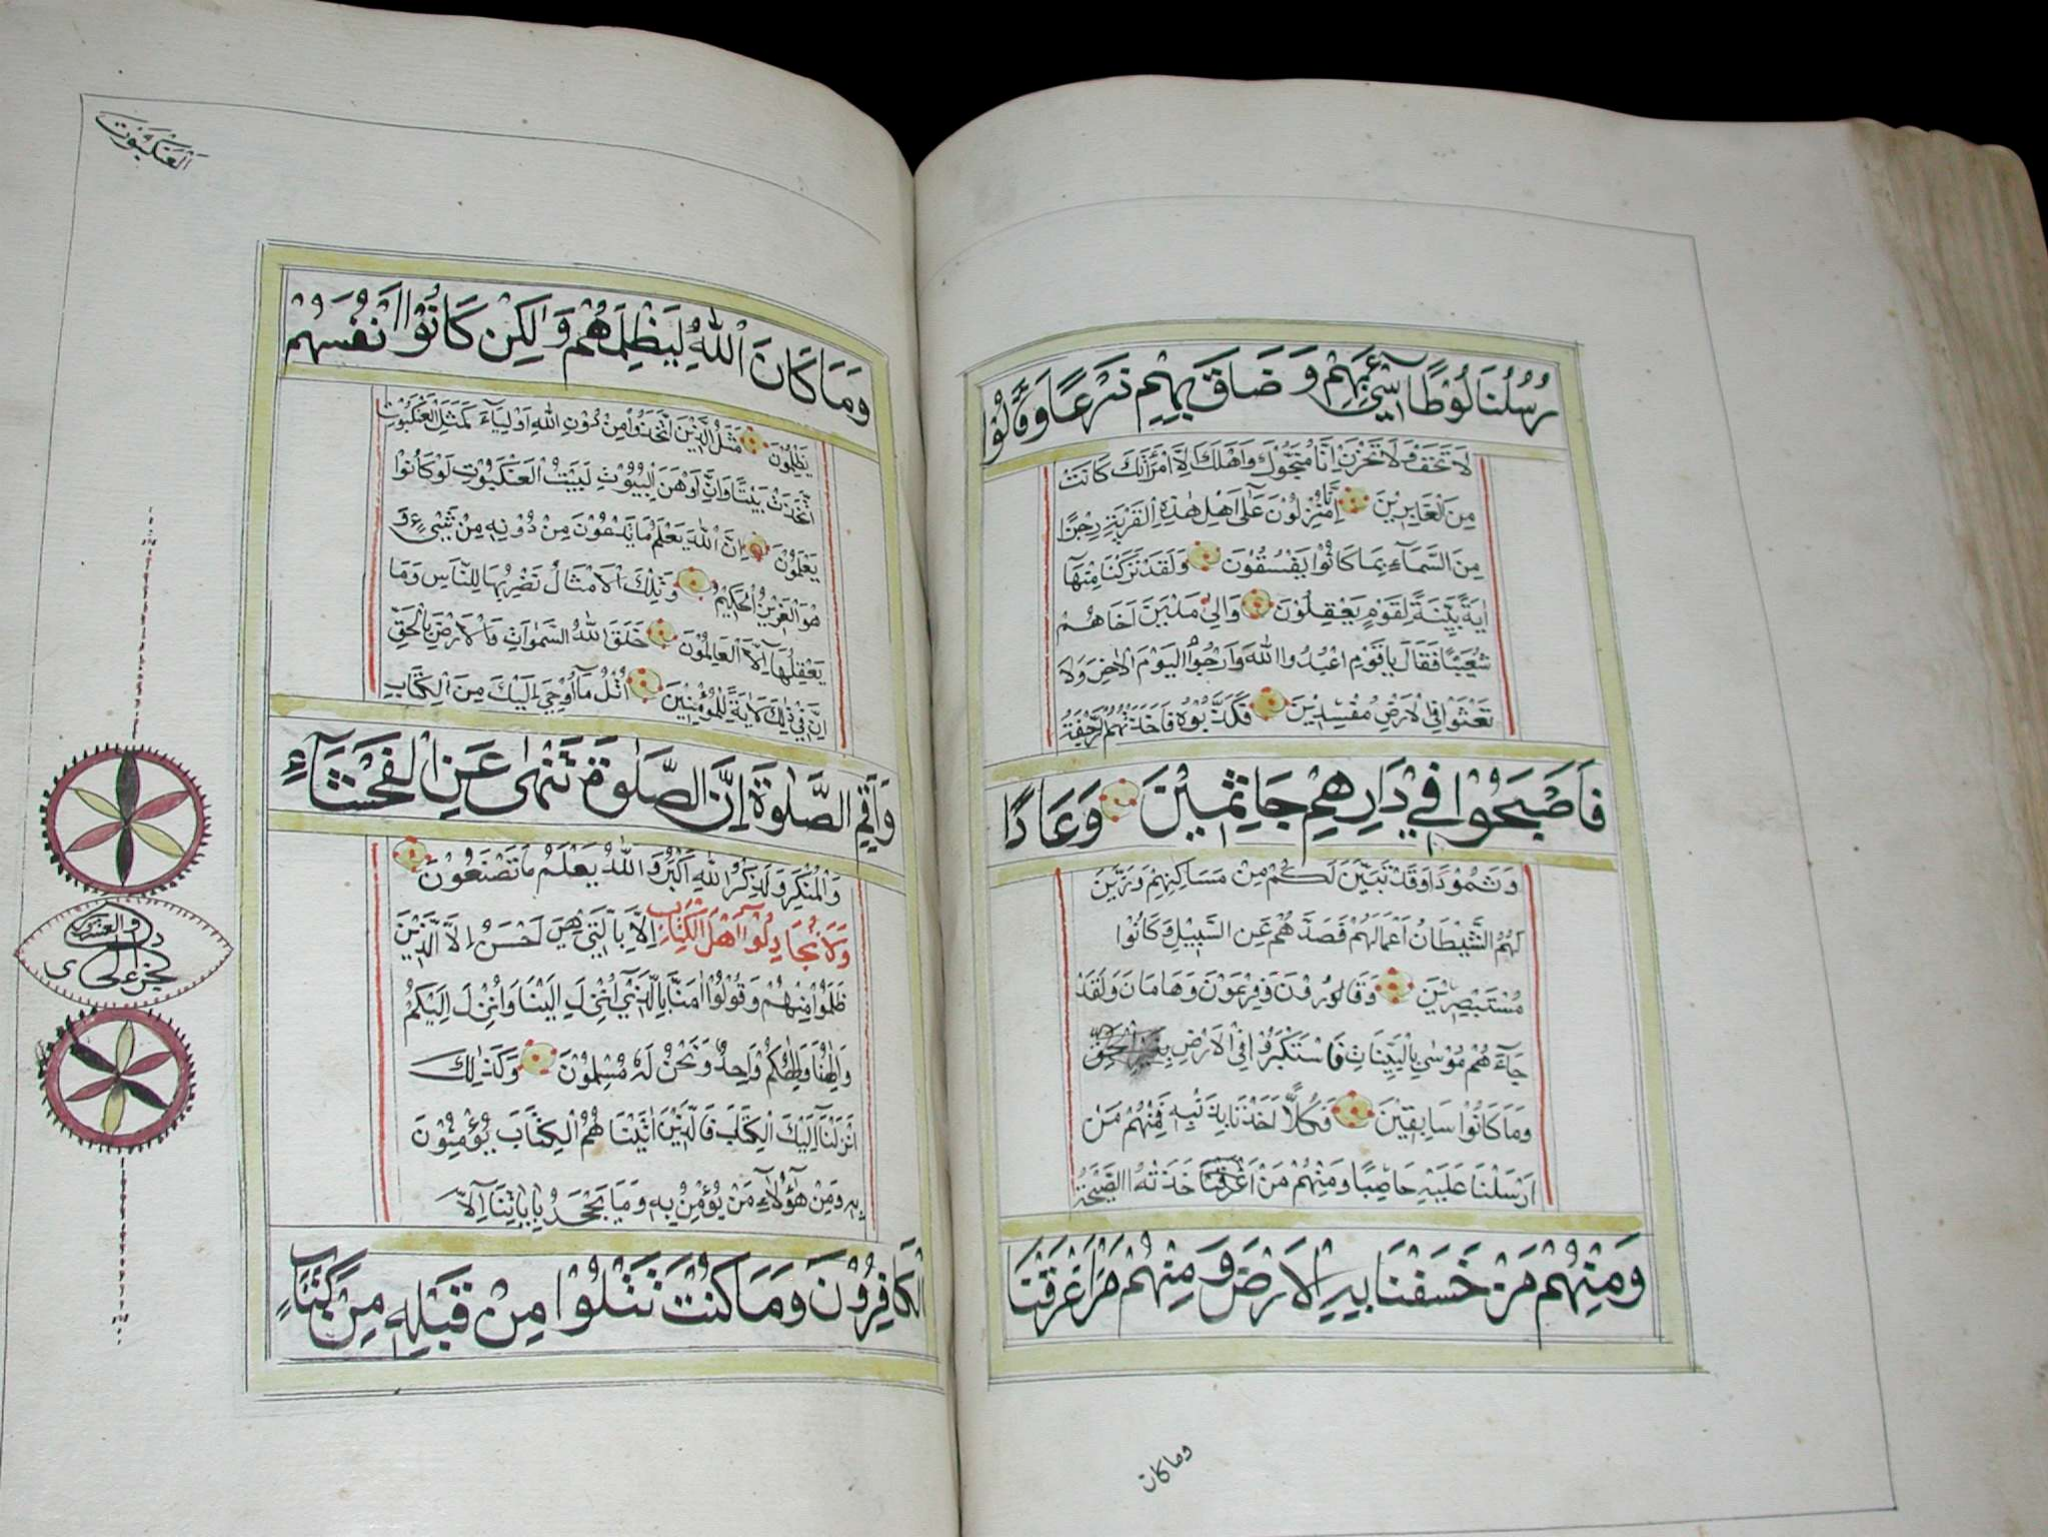 رُسُلُنَا لُوْطًا سِيْٓئَ بِهِمْ وَضَاقَ بِهِمْ ذَرْعًا وَقَالُوْا
لَا تَخَفْ وَلَا تَحْزَنْ اِنَّا مُنَجُّوْكَ وَاَهْلَكَ اِلَّا امْرَاَتَكَ كَانَتْ
مِنَ الْغَابِرِيْنَ اِنَّا مُنْزِلُوْنَ عَلٰٓى اَهْلِ هٰذِهِ الْقَرْيَةِ رِجْزًا
مِنَ السَّمَآءِ بِمَا كَانُوْا يَفْسُقُوْنَ وَلَقَدْ تَرَكْنَا مِنْهَآ
اٰيَةً بَيِّنَةً لِقَوْمٍ يَعْقِلُوْنَ وَاِلٰى مَدْيَنَ اَخَاهُمْ
شُعَيْبًا فَقَالَ يَا قَوْمِ اعْبُدُوا اللّٰهَ وَارْجُوا الْيَوْمَ الْاٰخِرَ وَلَا
تَعْثَوْا فِي الْاَرْضِ مُفْسِدِيْنَ فَكَذَّبُوْهُ فَاَخَذَتْهُمُ الرَّجْفَةُ
فَاَصْبَحُوْا فِيْ دَارِهِمْ جَاثِمِيْنَ وَعَادًا
وَثَمُوْدَا وَقَدْ تَبَيَّنَ لَكُمْ مِنْ مَسَاكِنِهِمْ وَزَيَّنَ
لَهُمُ الشَّيْطَانُ اَعْمَالَهُمْ فَصَدَّهُمْ عَنِ السَّبِيْلِ وَكَانُوْا
مُسْتَبْصِرِيْنَ وَقَارُوْنَ وَفِرْعَوْنَ وَهَامَانَ وَلَقَدْ
جَآءَهُمْ مُوْسٰى بِالْبَيِّنَاتِ فَاسْتَكْبَرُوْا فِي الْاَرْضِ بِغَيْرِ الْحَقِّ
وَمَا كَانُوْا سَابِقِيْنَ فَكُلًّا اَخَذْنَا بِذَنْبِهِ فَمِنْهُمْ مَنْ
اَرْسَلْنَا عَلَيْهِ حَاصِبًا وَمِنْهُمْ مَنْ اَخَذَتْهُ الصَّيْحَةُ
وَمِنْهُمْ مَنْ خَسَفْنَا بِهِ الْاَرْضَ وَمِنْهُمْ مَنْ اَغْرَقْنَا
وما كان
العنكبوت
وَمَا كَانَ اللّٰهُ لِيَظْلِمَهُمْ وَلٰكِنْ كَانُوْا اَنْفُسَهُمْ
يَظْلِمُوْنَ مَثَلُ الَّذِيْنَ اتَّخَذُوْا مِنْ دُوْنِ اللّٰهِ اَوْلِيَآءَ كَمَثَلِ الْعَنْكَبُوْتِ
اتَّخَذَتْ بَيْتًا وَاِنَّ اَوْهَنَ الْبُيُوْتِ لَبَيْتُ الْعَنْكَبُوْتِ لَوْ كَانُوْا
يَعْلَمُوْنَ اِنَّ اللّٰهَ يَعْلَمُ مَا يَدْعُوْنَ مِنْ دُوْنِهِ مِنْ شَيْءٍ وَ
هُوَ الْعَزِيْزُ الْحَكِيْمُ وَتِلْكَ الْاَمْثَالُ نَضْرِبُهَا لِلنَّاسِ وَمَا
يَعْقِلُهَآ اِلَّا الْعَالِمُوْنَ خَلَقَ اللّٰهُ السَّمٰوَاتِ وَالْاَرْضَ بِالْحَقِّ
اِنَّ فِيْ ذٰلِكَ لَاٰيَةً لِلْمُؤْمِنِيْنَ اُتْلُ مَآ اُوْحِيَ اِلَيْكَ مِنَ الْكِتَابِ
وَاَقِمِ الصَّلٰوةَ اِنَّ الصَّلٰوةَ تَنْهٰى عَنِ الْفَحْشَآءِ
وَالْمُنْكَرِ وَلَذِكْرُ اللّٰهِ اَكْبَرُ وَاللّٰهُ يَعْلَمُ مَا تَصْنَعُوْنَ
وَلَا تُجَادِلُوْٓا اَهْلَ الْكِتَابِ اِلَّا بِالَّتِيْ هِيَ اَحْسَنُ اِلَّا الَّذِيْنَ
ظَلَمُوْا مِنْهُمْ وَقُوْلُوْٓا اٰمَنَّا بِالَّذِيْٓ اُنْزِلَ اِلَيْنَا وَاُنْزِلَ اِلَيْكُمْ
وَاِلٰهُنَا وَاِلٰهُكُمْ وَاحِدٌ وَنَحْنُ لَهُ مُسْلِمُوْنَ وَكَذٰلِكَ
اَنْزَلْنَآ اِلَيْكَ الْكِتَابَ فَالَّذِيْنَ اٰتَيْنَاهُمُ الْكِتَابَ يُؤْمِنُوْنَ
بِهِ وَمِنْ هٰٓؤُلَآءِ مَنْ يُؤْمِنُ بِهِ وَمَا يَجْحَدُ بِاٰيَاتِنَآ اِلَّا
الْكَافِرُوْنَ وَمَا كُنْتَ تَتْلُوْا مِنْ قَبْلِهِ مِنْ كِتَابٍ